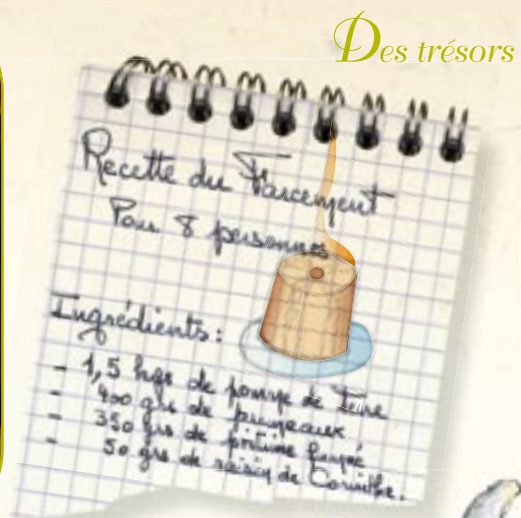 Des trésors
Recette du Farcement
Pour 8 personnes
Ingrédients:
- 1,5 kgs de pomme de terre
- 400 grs de pruneaux
- 350 grs de poitrine fumé
- 50 grs de raisin de Corinthe.